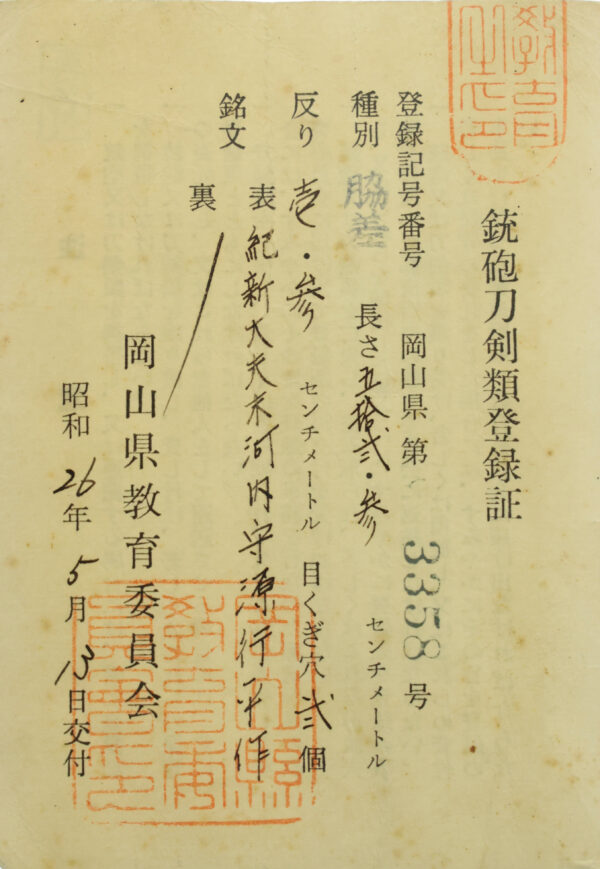 銃砲刀剣類登録証
登録記号番号 岡山県第 3358 号
種別 脇差 長さ 五拾弐・参 センチメートル
反り 壱・参 センチメートル 目くぎ穴 弐 個
銘文 表 紀新大夫末河内守源行平作
裏
岡山県教育委員会
昭和 26 年 5 月 13 日交付
岡山縣教育委員會印